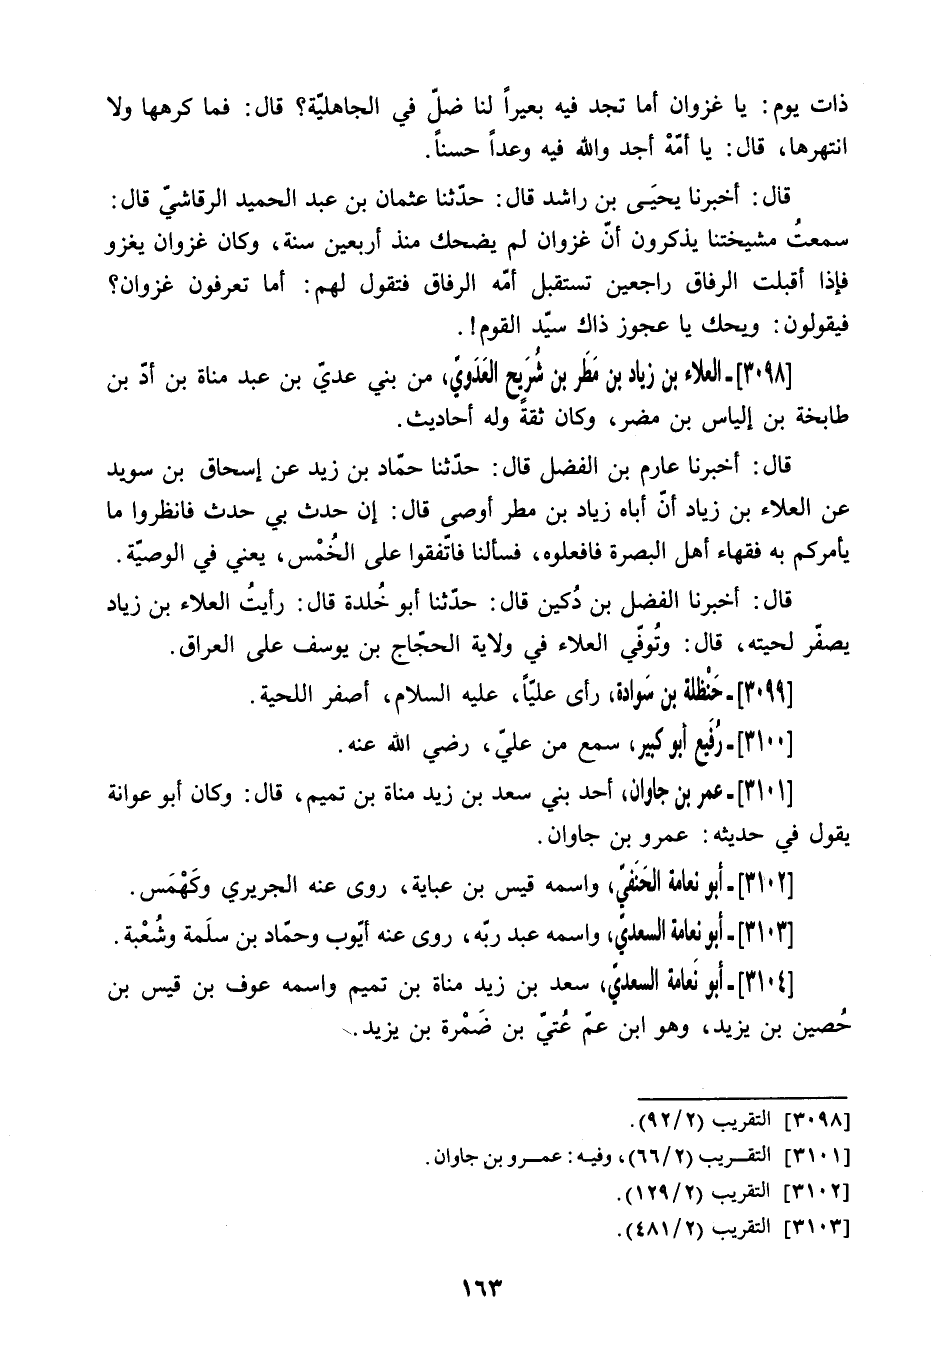 ذات يوم: يا غزوان أما تجد فيه بعيراً لنا ضلّ في الجاهليّة؟ قال: فما كرهها ولا
انتهرها، قال: يا أمّهْ أجد والله فيه وعداً حسناً.
قال: أخبرنا يحيَى بن راشد قال: حدّثنا عثمان بن عبد الحميد الرقاشيّ قال:
سمعتُ مشيختنا يذكرون أنّ غزوان لم يضحك منذ أربعين سنة، وكان غزوان يغزو
فإذا أقبلت الرفاق راجعين تستقبل أمّه الرفاق فتقول لهم: أما تعرفون غزوان؟
فيقولون: ويحك يا عجوز ذاك سيّد القوم!.
[٣٠٩٨] ـ العلاء بن زياد بن مَطَر بن شُرَيح العَدَويّ، من بني عديّ بن عبد مناة بن أدّ بن
طابخة بن إلياس بن مضر، وكان ثقةً وله أحاديث.
قال: أخبرنا عارم بن الفضل قال: حدّثنا حمّاد بن زيد عن إسحاق بن سويد
عن العلاء بن زياد أنّ أباه زياد بن مطر أوصى قال: إن حدث بي حدث فانظروا ما
يأمركم به فقهاء أهل البصرة فافعلوه، فسألنا فاتّفقوا على الخُمْس، يعني في الوصيّة.
قال: أخبرنا الفضل بن دُكين قال: حدّثنا أبو خُلدة قال: رأيتُ العلاء بن زياد
يصفّر لحيته، قال: وتُوفّي العلاء في ولاية الحجّاج بن يوسف على العراق.
[٣٠٩٩] ـ حَنْظلة بن سَوادة، رأى عليّاً، عليه السلام، أصفر اللحية.
[٣١٠٠] ـ رُفَيع أبو كبير، سمع من عليّ، رضي الله عنه.
[٣١٠١] ـ عمر بن جاوان، أحد بني سعد بن زيد مناة بن تميم، قال: وكان أبو عوانة
يقول في حديثه: عمرو بن جاوان.
[٣١٠٢] ـ أبو نعامة الحَنَفيّ، واسمه قيس بن عباية، روى عنه الجريري وكَهْمَس.
[٣١٠٣] ـ أبو نعامة السعديّ، واسمه عبد ربّه، روى عنه أيّوب وحمّاد بن سلَمة وشُعْبة.
[٣١٠٤] ـ أبو نَعامة السعديّ، سعد بن زيد مناة بن تميم واسمه عوف بن قيس بن
حُصين بن يزيد، وهو ابن عمّ عُتيّ بن ضَمْرة بن يزيد.
[٣٠٩٨] التقريب (٢/٩٢).
[٣١٠١] التقـريب (٢/٦٦)، وفيه: عمـرو بن جاوان.
[٣١٠٢] التقريب (٢/١٢٩).
[٣١٠٣] التقريب (٢/٤٨١).
١٦٣